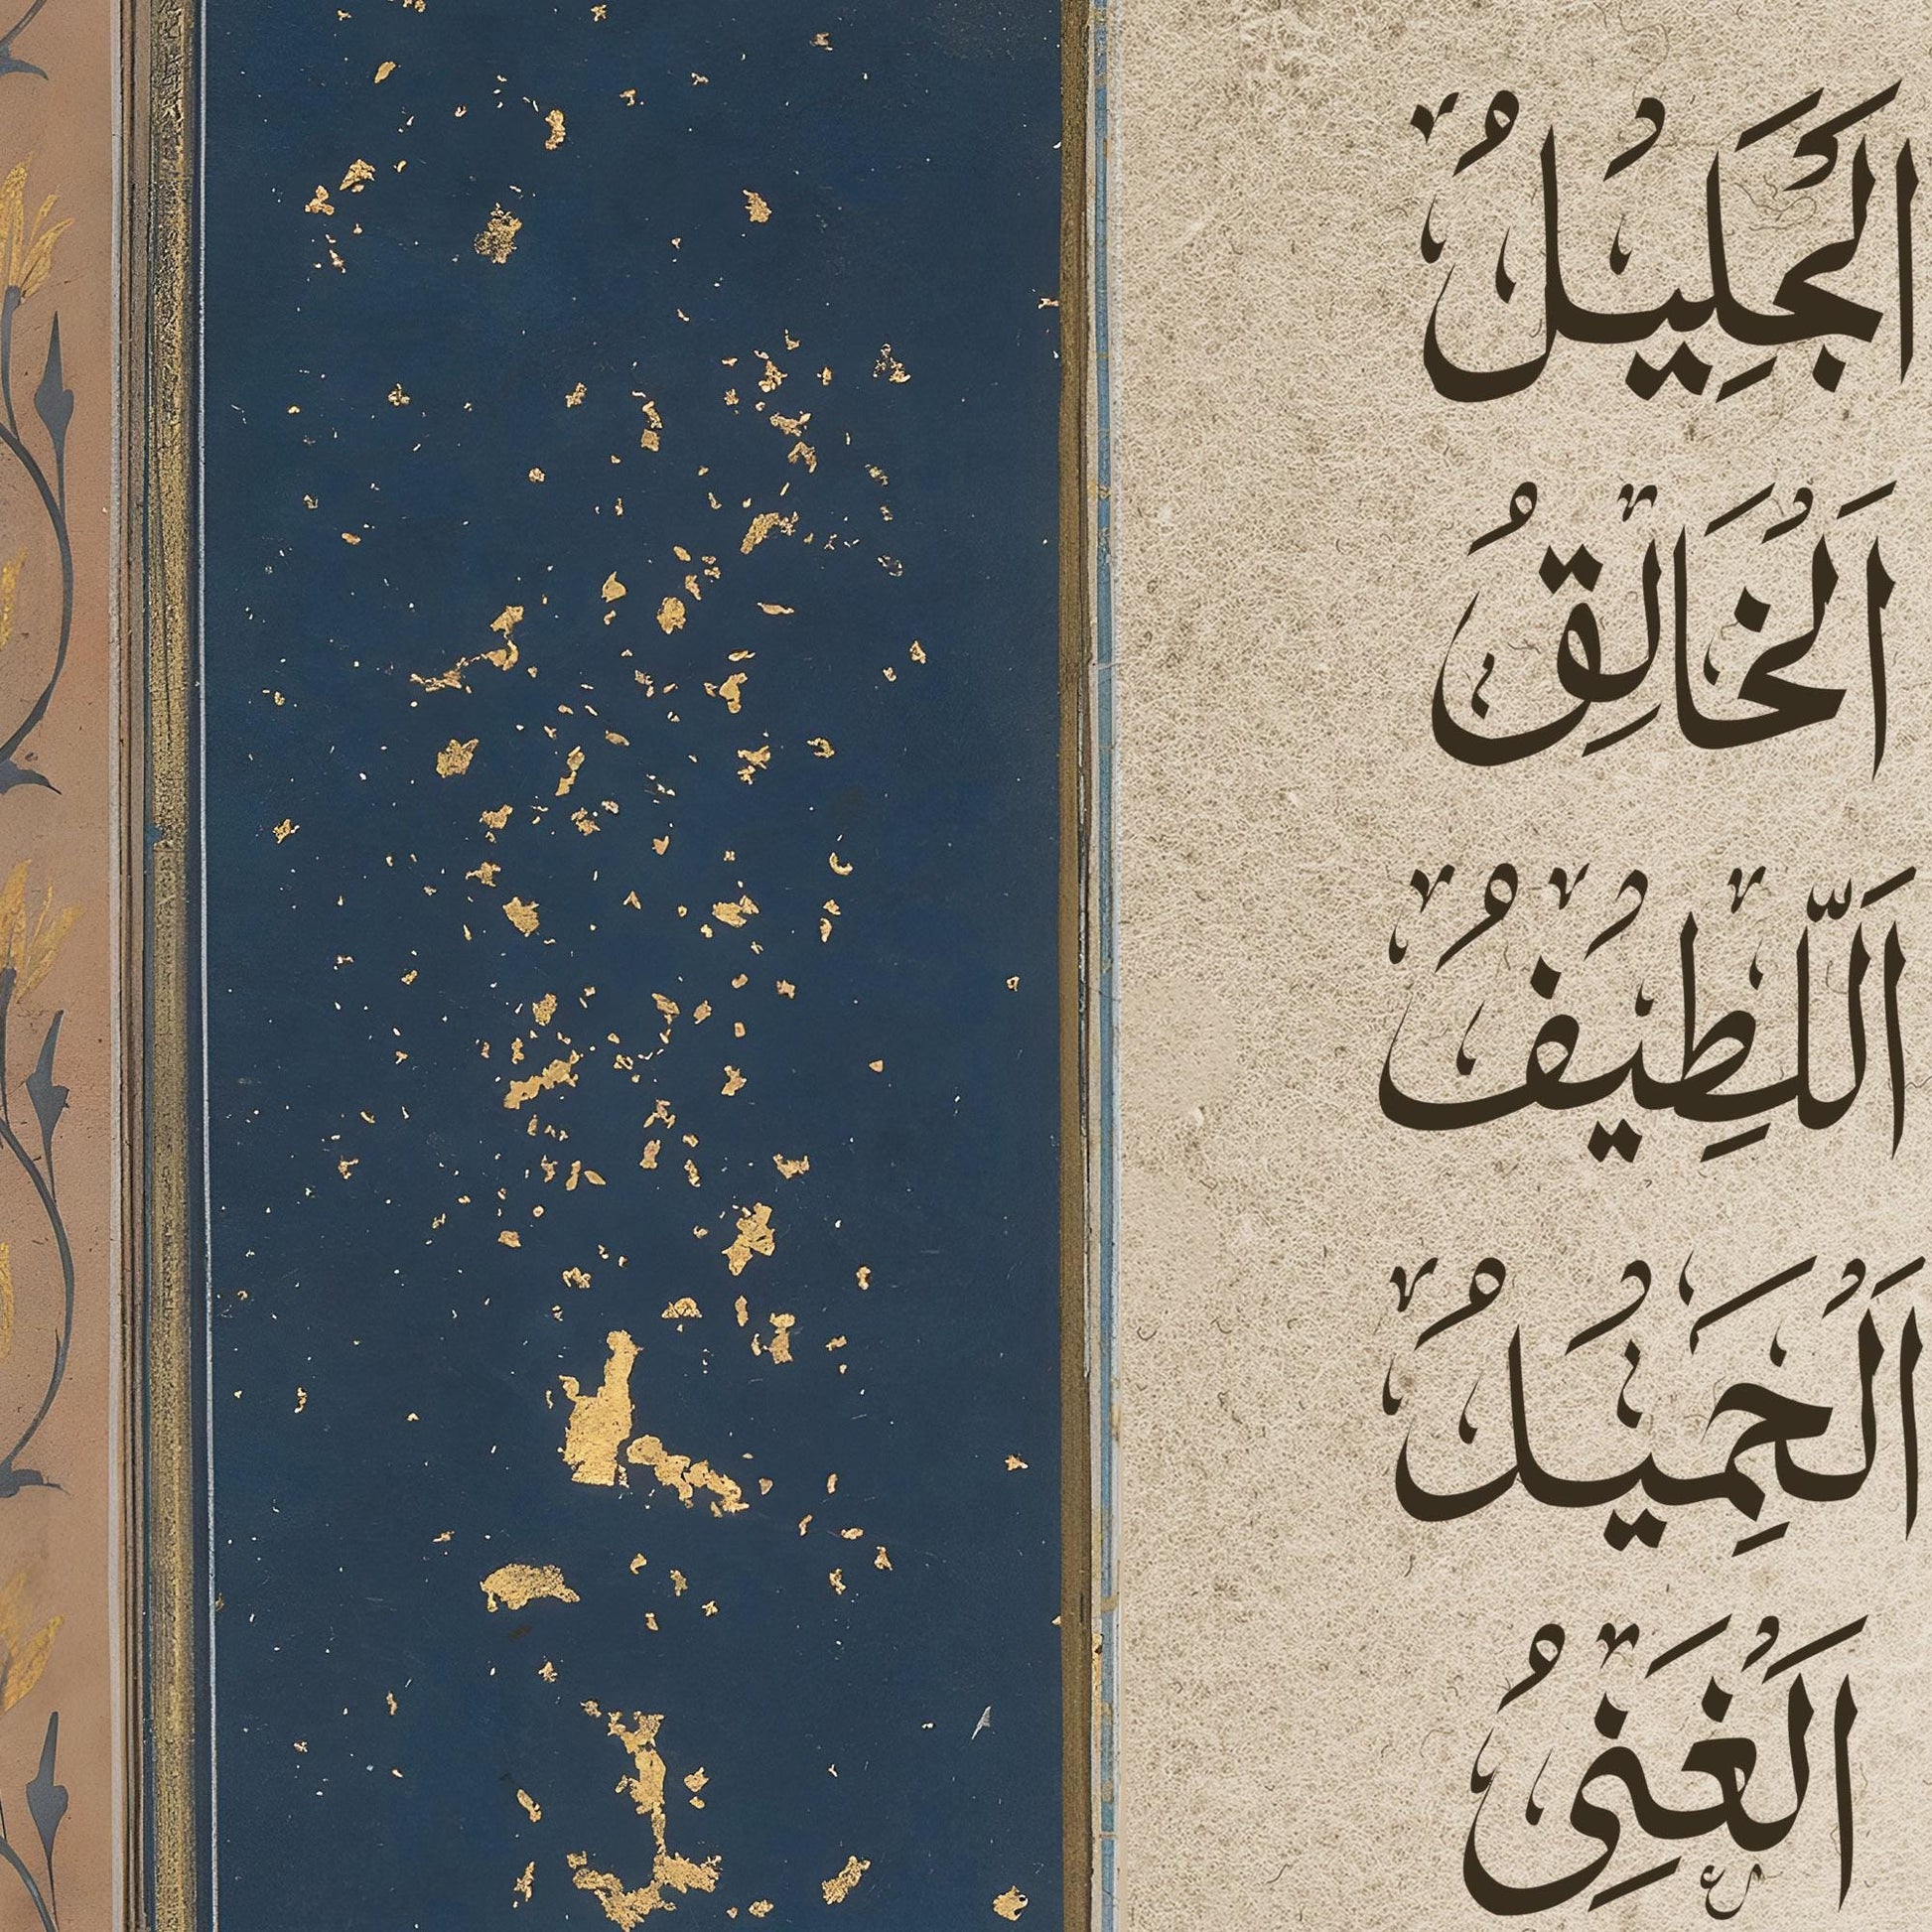 اَلْجَلِيلُ
اَلْخَالِقُ
اَللَّطِيفُ
اَلْغَنِىُ